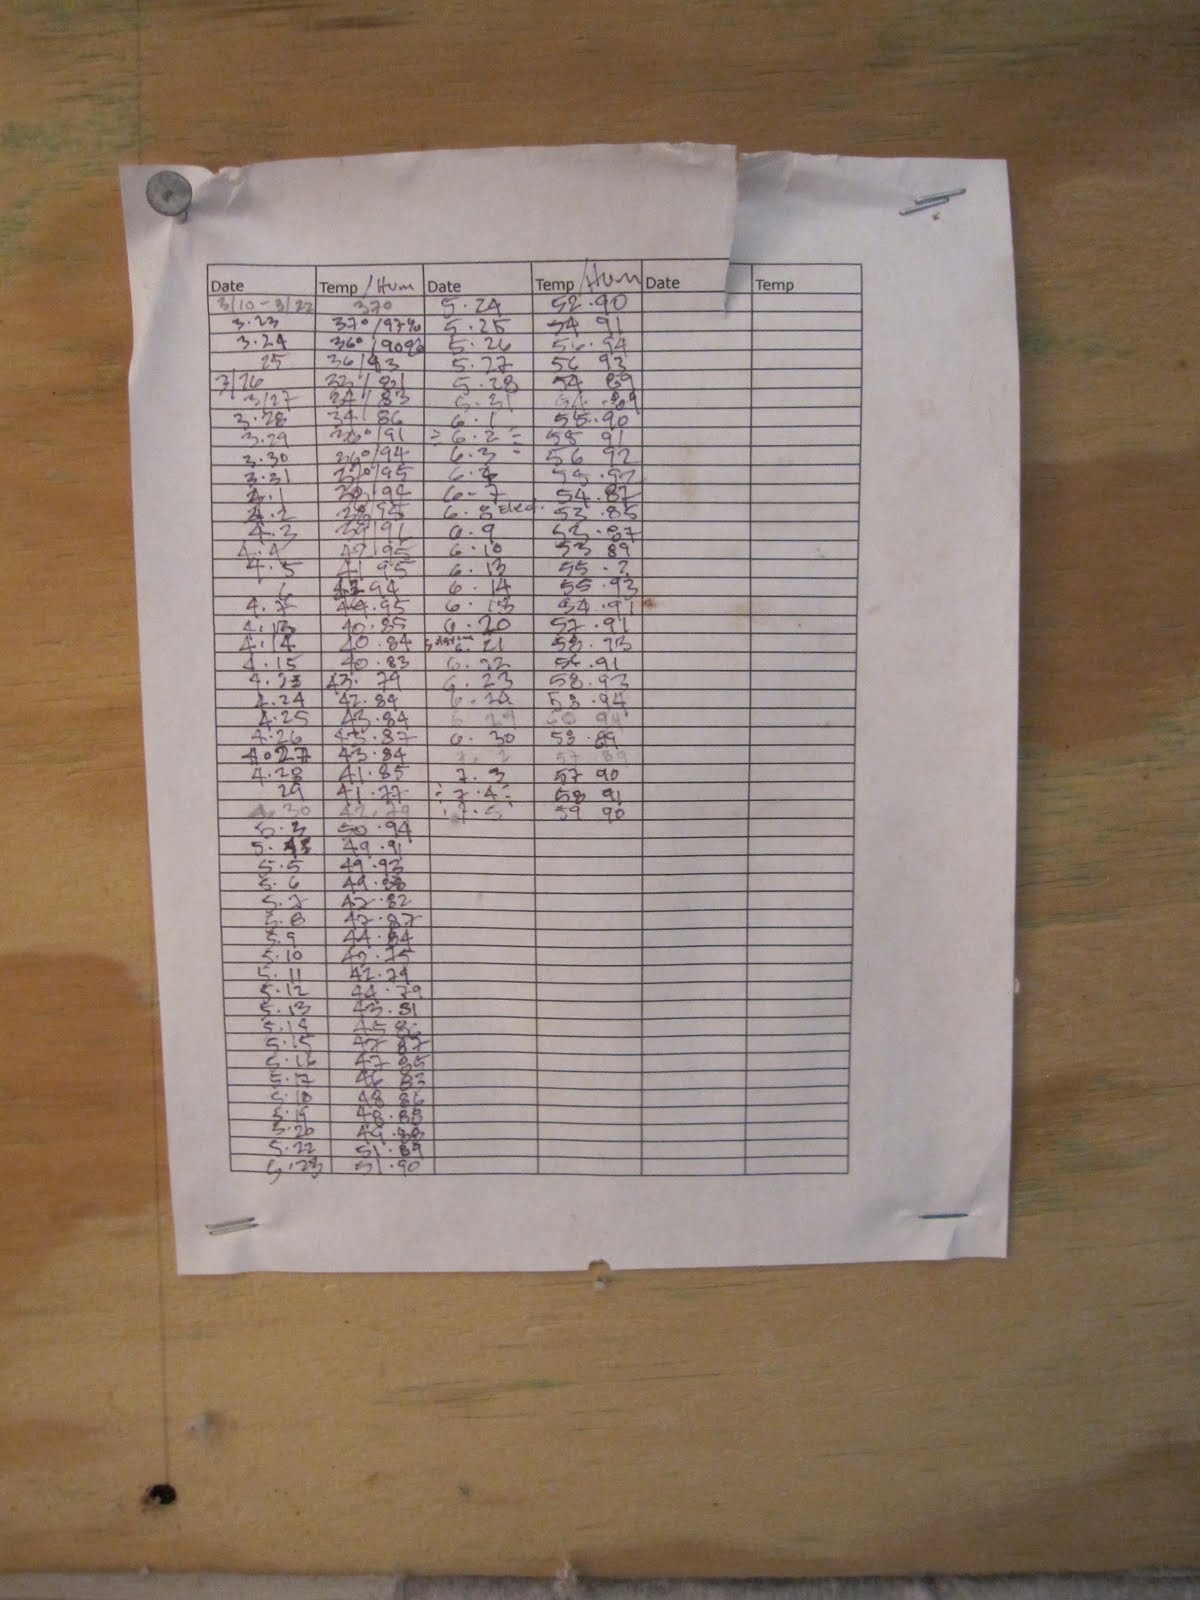 Date Temp /Hum Date Temp /Hum Date Temp
3/10-3/22 37° 5.24 52.90
3.23 37°/97% 5.25 54 91
3.24 36°/90% 5.26 56.94
25 36/93 5.27 56 93
3/26 5.28 54 89
3/27 34/83 5.31
3.28 34/86 6.1 55.90
3.29 6.2 55 91
3.30 6.3 56 92
3.31 6.4
4.1 6-7 54.87
4.2 6.8 53.85
4.3 39/91 6.9 53.87
4.4 42/95 6.10 53 89
4.5 41 95 6.13 55.?
6 42 94 6.14 55.93
4.7 44.95 54.91
4.13 40.85 6.20 57.91
4.14 40.84 21
4.15 40.83 6.22 56.91
4.23 43.79 6.23 58.93
4.24 42.84 6.24 58.94
4.25 43.84
4.26 45.87 6.30 58.89
4.27 43.84
4.28 41.85 7.3 57 90
29 41.77 7.4 58 91
4.30 42.79 7.5 59 90
5.3 50.94
49.91
5.5 49.93
5.6 49.88
5.7 47.82
5.8 47.87
5.9 44.84
5.10 42.75
5.11 42.79
5.12 44.79
5.13 43.81
5.14
5.15 47 87
5.16 47 85
5.17 46 83
5.18 48 86
5.19 48.88
5.20 49.88
5.22 51.89
5.23 51.90